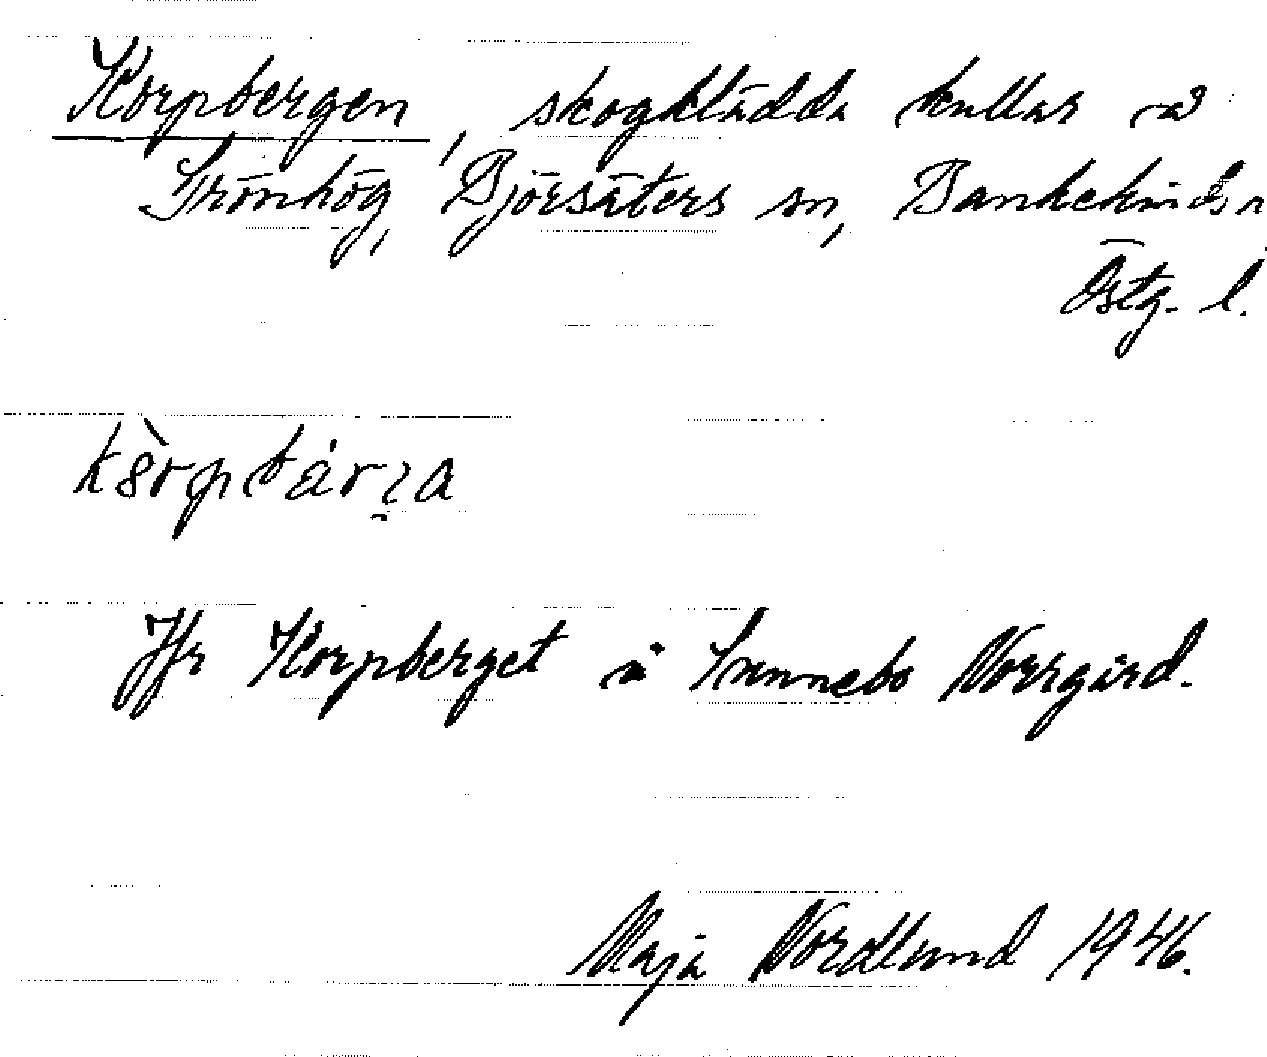 Korpbergen, skogklädda kullar å
Grönhög, Björsäters sn, Bankekinds
Östg. l.
Jfr Korpberget å Sunnebo Norrgård.
Maja Nordlund 1946.